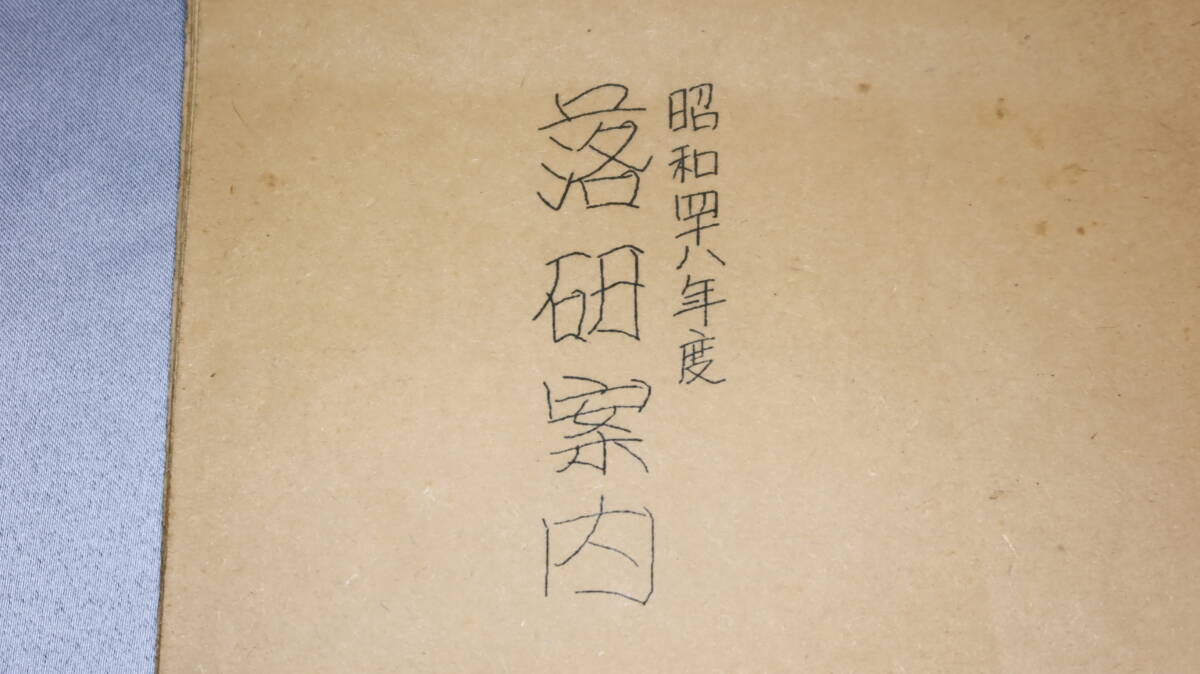 昭和四十八年度
落研案内